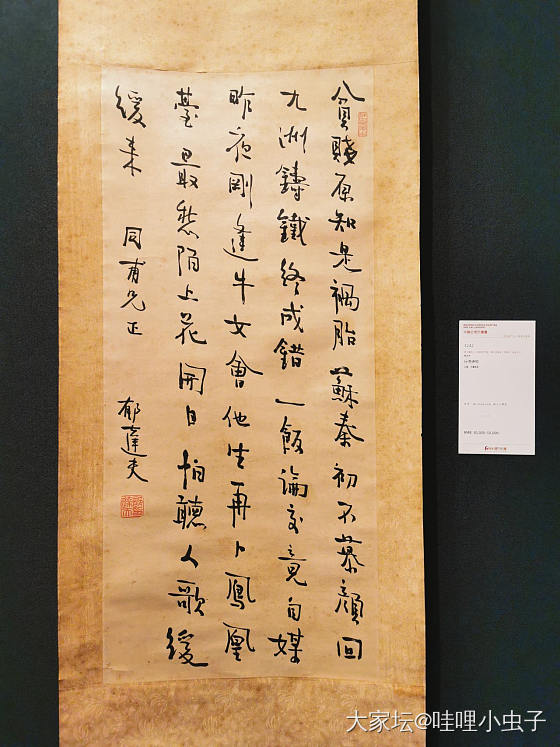 貧賤原知是禍胎蘇秦初不慕顏回
九洲鑄鐵終成錯一飯論交竟自媒
昨夜剛逢牛女會他生再卜鳳凰
臺最愁陌上花開日怕聽人歌緩
緩来 同甫兄正 郁達夫
大家坛@哇哩小虫子